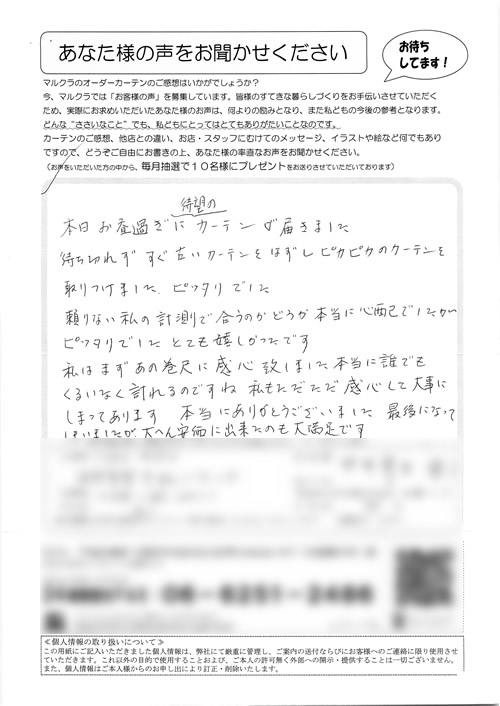 あなた様の声をお聞かせください
お待ち
してます!
マルクラのオーダーカーテンのご感想はいかがでしょうか?
今、マルクラでは「お客様の声」を募集しています。皆様のすてきな暮らしづくりをお手伝いさせていただく
ため、実際にお求めいただいたあなた様のお声は、何よりの励みとなり、また私どもの今後の参考となります。
どんな“ささいなこと”でも、私どもにとってはとてもありがたいことなのです。
カーテンのご感想、他店との違い、お店・スタッフにむけてのメッセージ、イラストや絵など何でもあり
ですので、どうぞご自由にお書きの上、あなた様の率直なお声をお聞かせください。
(お声をいただいた方の中から、毎月抽選で10名様にプレゼントをお送りさせていただいております)
待望の
本日お昼過ぎにカーテンが届きました
待ち切れず すぐ古いカーテンをはずしピカピカのカーテンを
取りつけました、ピッタリでした
頼りない私の計測で合うのかどうか本当に心配でしたが
ピッタリでした とても嬉しかったです
私はまずあの巻尺に感心致しました本当に誰でも
くるいなく計れるのですね 私もただただ感心して大事に
しまってあります 本当にありがとうございました 最後になって
しまいましたが、大へん安価に出来たのも大満足です
06-6251-2486
≪個人情報の取り扱いについて≫
この用紙にご記入いただきました個人情報は、弊社にて厳重に管理し、ご案内の送付ならびにお客様へのご連絡に限り使用させ
ていただきます。これ以外の目的で使用することおよび、ご本人の許可無く外部への開示・提供することは一切ございません。
また、個人情報はご本人様からのお申し出により訂正・削除いたします。